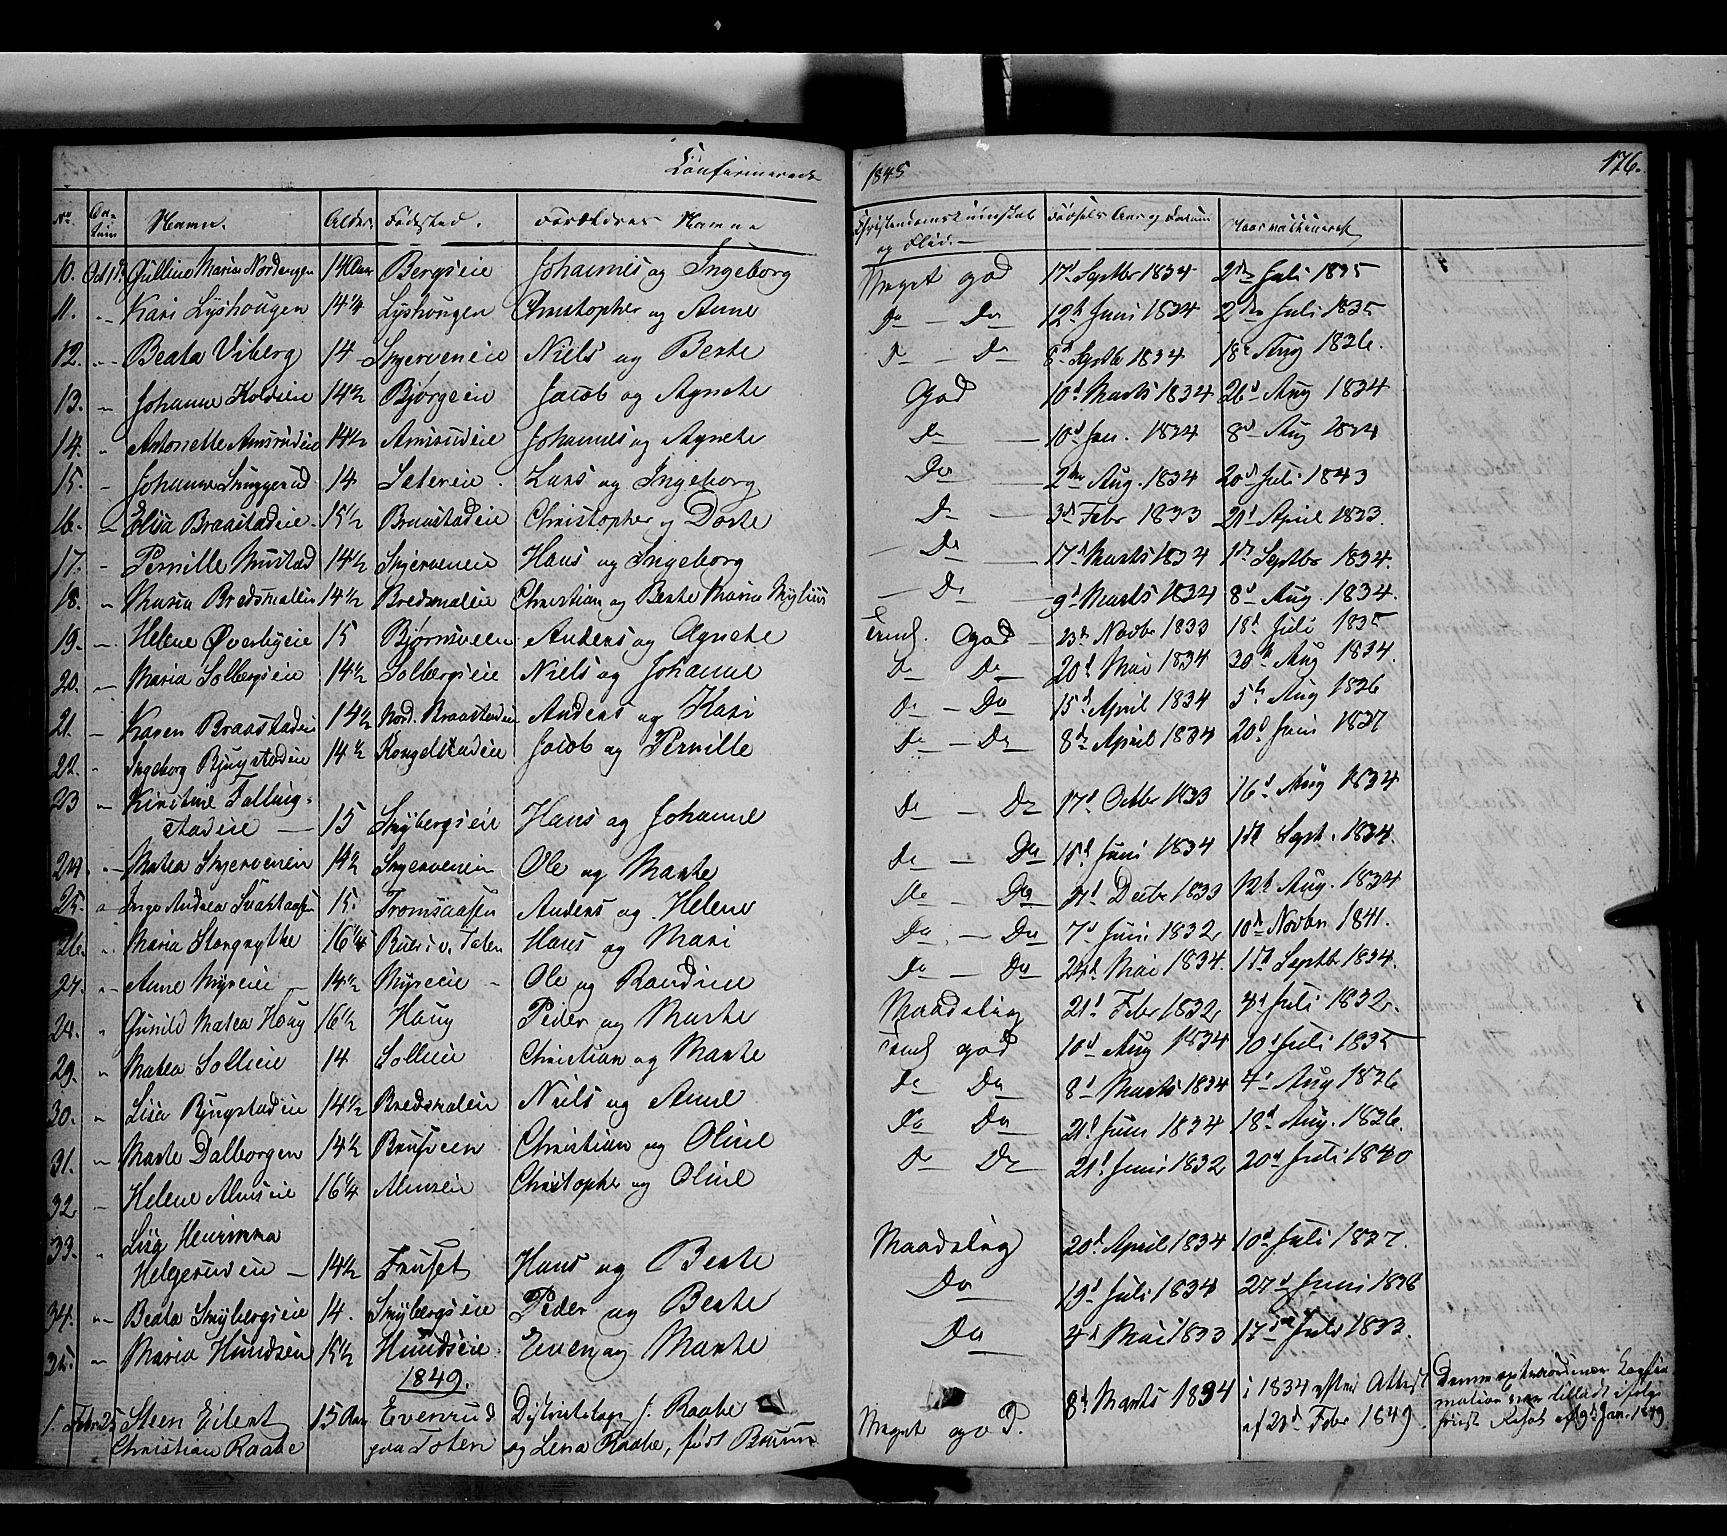 Confirmerede 1845 176.
No Datum Navn. Alder. Fødested. Forældres Navne Christendomskundskab og Flid. Fødsels Aar og Datum Naar vaccineret
10. Oct 1ste Gulline Maria Nordengen 14 Aar Bergseie Johannes og Ingeborg Meget god 17d Septbr 1834 2den Juli 1835
11. - Kari Lyshougen 14¼ Lyshougen Christopher og Anne Do - Do 12te Juni 1834 2den Juli 1835
12. - Beata Viberg 14 Skjerveneie Niels og Berte Do - Do 8d Septb 1834 18d Aug 1836.
13. - Johanne Koldeie 14½ Bjørgeie Jacob og Agnete God 10d Marts 1834 26d Aug 1834
14. - Antonette Amsrudeie 14½ Amsrudeie Johannes og Agnete Do 10d Jan. 1834 8d Aug 1834
15. - Johanne Snuggerud 14 Satereie. Lars og Ingeborg Do 2den Aug. 1834 20d Juli 1843
16. - Elisa Braastadeie 15½ Braastadeie Christopher og Dorte Do 3d Febr 1833 21d April 1833.
17. - Pernille Mustad 14½ Skjerveneie Hans og Ingeborg Do 17d Marts 1834 1ste Septbr 1834.
18. - Maria Bredsmalen 14½ Bredsmaleie Christian og Berte Maria Mylius Do 9d Marts 1834 8d Aug. 1834.
19. - Helene Øverbyeie 15 Bjørnsveen Anders og Agnete Teml. God 23d Novbr 1833 18d Juli 1835
20. - Maria Solbergseie 14½ Solbergseie Niels og Johanne Do Do 20d Mai 1834 30te Aug 1834.
21. - Karen Braastadeie 14½ Nord. Braastadeie Anders og Kari Do - Do 15d April 1834 5te Aug 1836
22. - Ingeborg Bjugstadeie 14½ Kongelstadeie Jacob og Pernille Do - Do 8de April 1834 20d Juni 1837
23 - Kirstine Falling-
stadeie 15 Smybergseie Hans og Johanne Do - Do 17d Octbr 1833 16d Aug 1834
24. - Matea Skjerveneie 14½ Skjerveneie Ole og Marte Do - Do 15d Juni 1834 1ste Sept. 1834.
25. - Inge Andrea 15. Tromsaasen Anders og Helene Do - Do Decbr 1833 12d Aug. 1834
26. - Maria 16¼ Toten Hans og Mari Do - Do 7d Juni 1832 10d Novbr 1841.
27. - Anne Myreie 14½ Myreie Ole og Randine Do - Do 24d Mai 1834. 11te Septb 1834.
28. - Gunild Matea Houg 16½ Houg Peder og Marte Maadelig 21d Febr 1832 4d Juli 1832.
29. - Matea Sollieie 14 Sollieie Christian og Marte Teml god 10d Aug 1834 10d Juli 1835
30. - Lisa Bjugstadeie 14½ Bredsmaleie Niels og Anne Do Do 8d Marts 1834 4d Aug 1836
31. - Marte Dalborgen 14½ Brusveen Christian og Oline Do Do 21d Juni 1834 18d Aug. 1836.
32. Helene Almseie 16¼ Almseie Christopher og Oline Do Do 21d Juni 1832 20d Juli 1840
33. - Lisa Henrimma
Helgerudeie 14½ Fruset Hans og Berte Maadelig 20d April 1834 10d Juli 1837.
34. - Beata Smybergseie 14. Smybergseie Peder og Berte Do 19d Juli 1834 27d Juni 1836
35. - Maria Hundseie 15½ Hundseie Even og Marte Do 4d Mai 1833 17de Juli 1833.
1849.
1. Febr 25 Steen Eilert 15 Aar Evenrud Distriktslæge J. Raabe Meget god. 8d Marts 1834 i 1834 efter Attest Denne extraordinær Confir
Christian Raabe paa Toten og Lena Raabe, født Bruun af 23d Febr 1849. mation var tilladt ifølge
Resol. af 9d Jan. 1849.